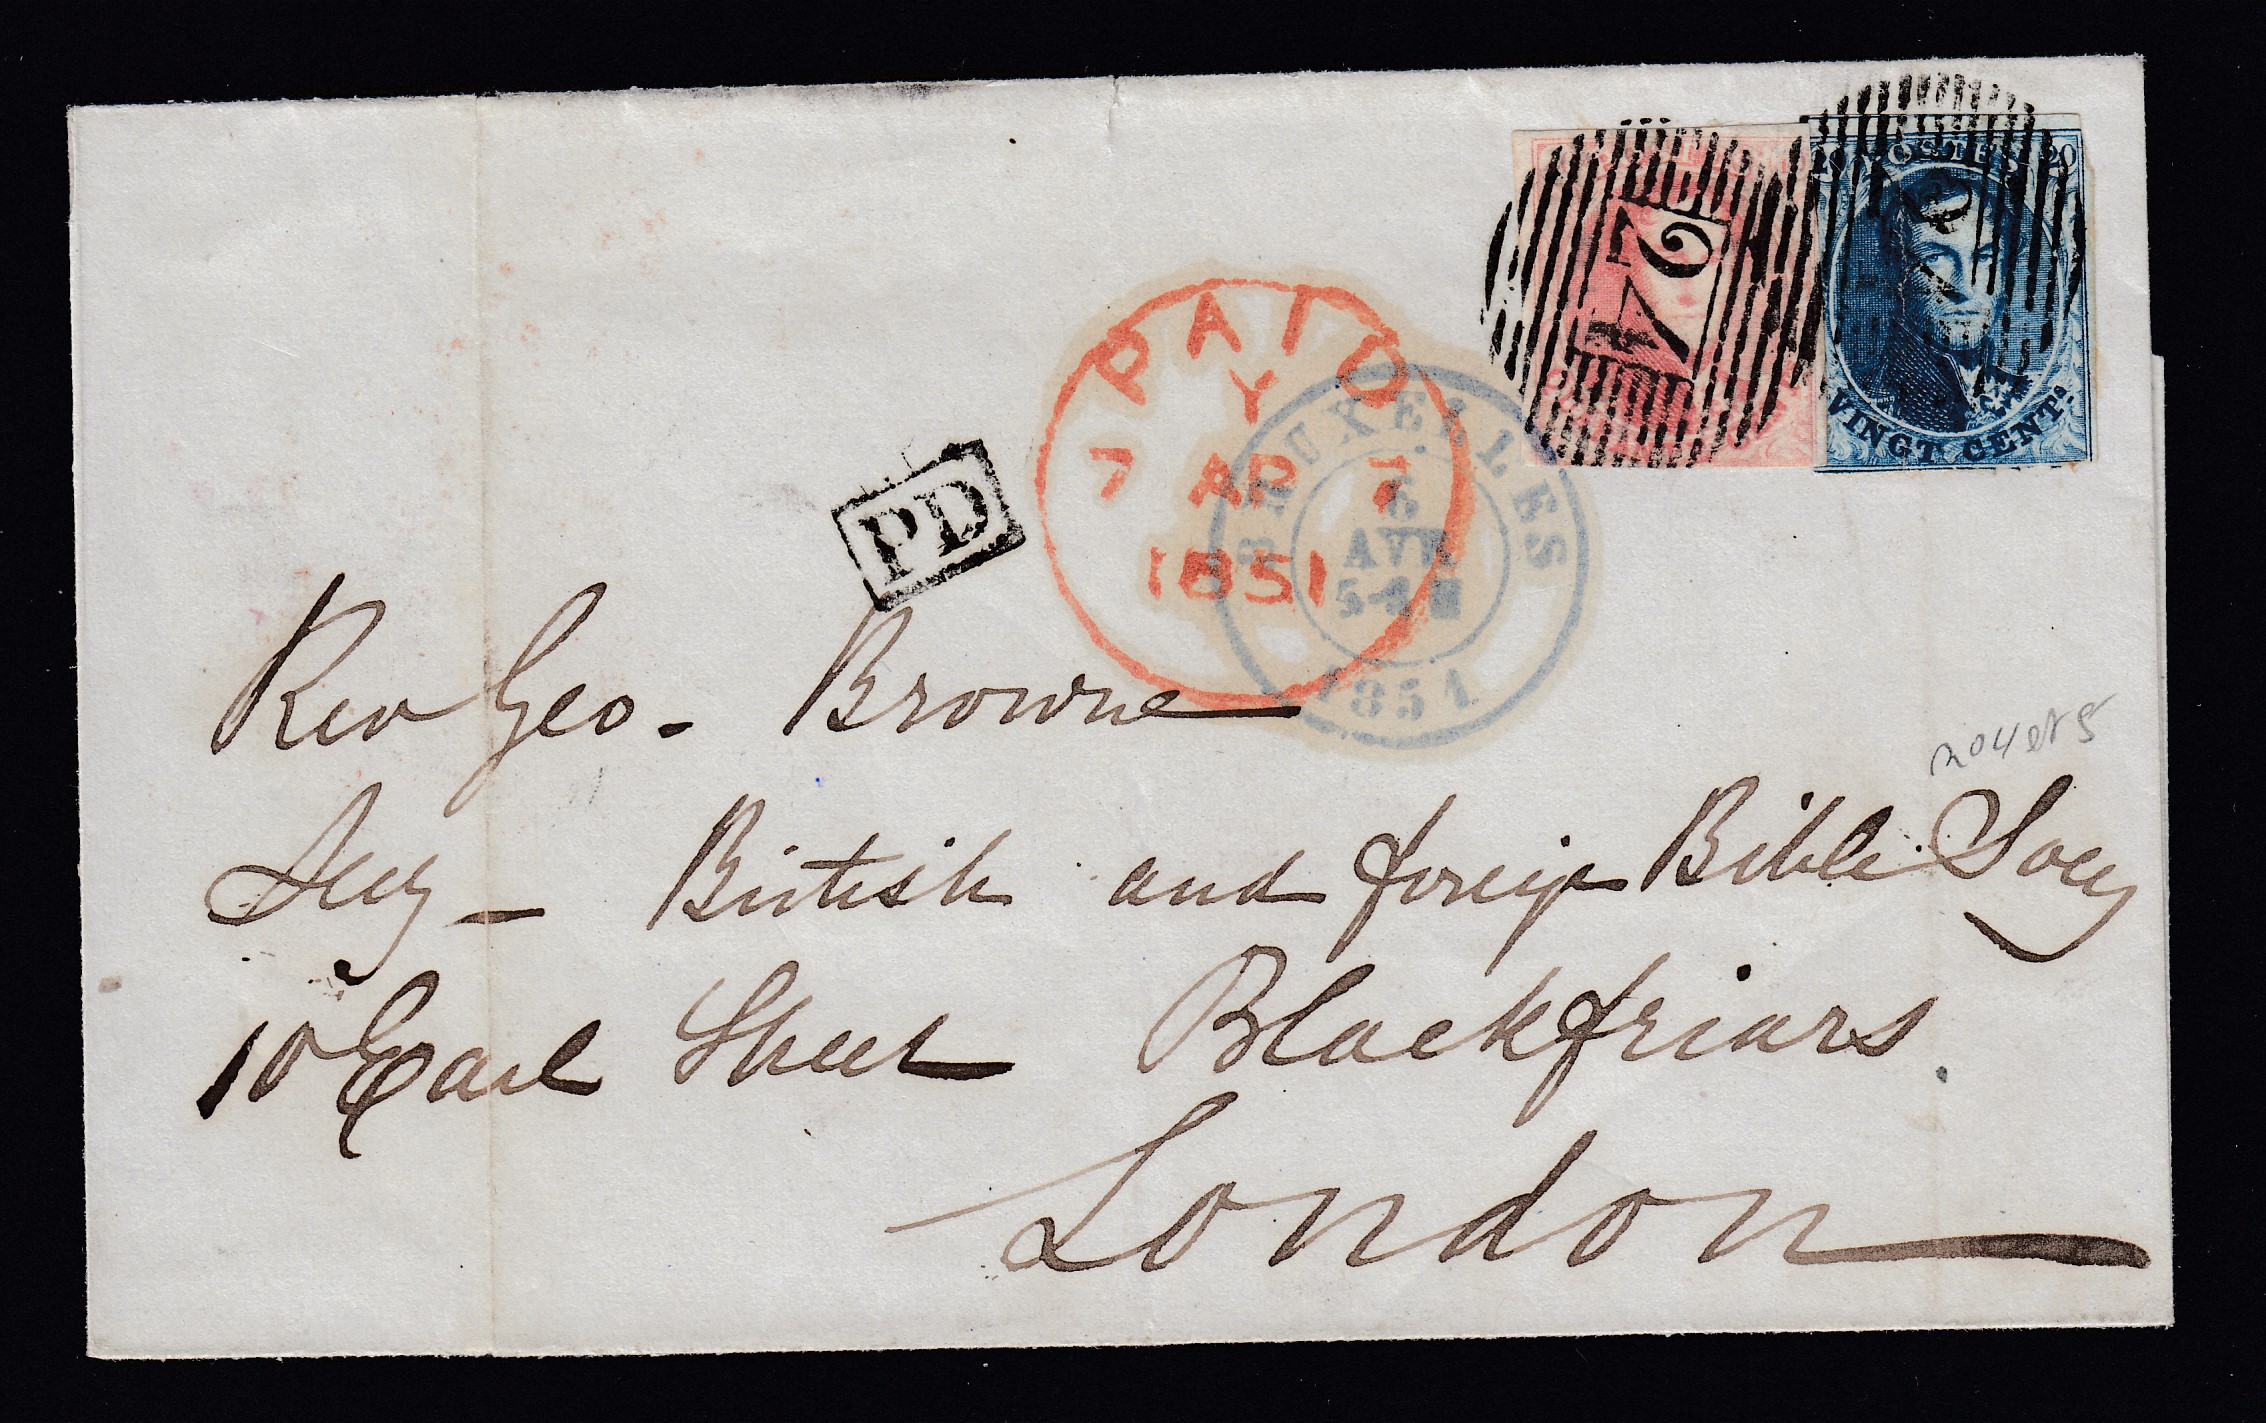 20 POSTES 20
VINGT CENTS
24
PAID
Y
7 AP 7
1851
BRUXELLES
6
AVR
1851
PD
Rev Geo. Browne
Secy - British and foreign Bible Socy
10 Earl Street Blackfriars.
London